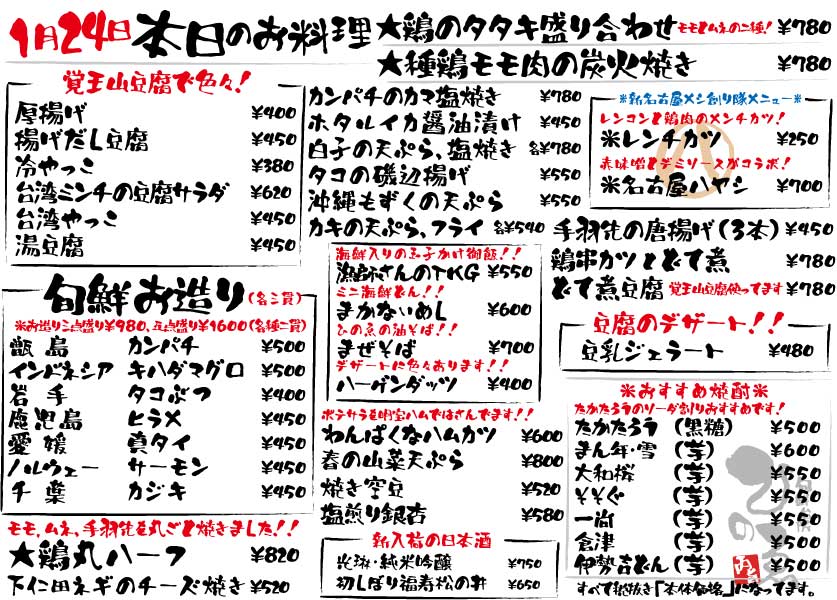 1月24日 本日のお料理
★鶏のタタキ盛り合わせ モモとムネの二種! ¥780
★種鶏モモ肉の炭火焼き ¥780
覚王山豆腐で色々!
厚揚げ ¥400
揚げだし豆腐 ¥450
冷やっこ ¥380
台湾ミンチの豆腐サラダ ¥620
台湾やっこ ¥450
湯豆腐 ¥450
旬鮮お造り(各三貫)
※お造り三点盛り¥980、五点盛り¥1600(各種二貫)
甑島 カンパチ ¥500
インドネシア キハダマグロ ¥500
岩手 タコぶつ ¥400
鹿児島 ヒラメ ¥450
愛媛 真タイ ¥450
ノルウェー サーモン ¥450
千葉 カジキ ¥450
モモ、ムネ、手羽先を丸ごと焼きました!!
★鶏丸ハーフ ¥820
下仁田ネギのチーズ焼き ¥520
カンパチのカマ塩焼き ¥780
ホタルイカ醤油漬け ¥450
白子の天ぷら、塩焼き 各¥780
タコの磯辺揚げ ¥550
沖縄もずくの天ぷら ¥550
カキの天ぷら、フライ 各¥540
海鮮入りの玉子かけ御飯!!
漁師さんのTKG ¥550
ミニ海鮮どん!!
まかないめし ¥600
ひの魚の油そば!!
まぜそば ¥700
デザートに色々おります!!
ハーゲンダッツ ¥400
ポテサラを明宝ハムではさんでます!!
わんぱくなハムカツ ¥600
春の山菜天ぷら ¥800
焼き空豆 ¥520
塩煎り銀杏 ¥580
新入荷の日本酒
純米吟醸 ¥750
初しぼり福寿松の井 ¥650
※新名古屋メシ創り隊メニュー※
レンコンと鶏肉のメンチカツ!
※レンチカツ ¥250
赤味噌とデミソースがコラボ!
※名古屋ハヤシ ¥700
手羽先の唐揚げ(3本) ¥450
鶏串カツとどて煮 ¥780
どて煮豆腐 覚王山豆腐使ってます ¥780
豆腐のデザート!!
豆乳ジェラート ¥480
※おすすめ焼酎※
たかたろうのソーダ割りおすすめです!
たかたろう (黒糖) ¥500
まん年・雪 (芋) ¥600
大和桜 (芋) ¥550
そそぐ (芋) ¥550
一尚 (芋) ¥550
倉津 (芋) ¥500
伊勢吉どん (芋) ¥500
すべて税抜き「本体価格」になってます。